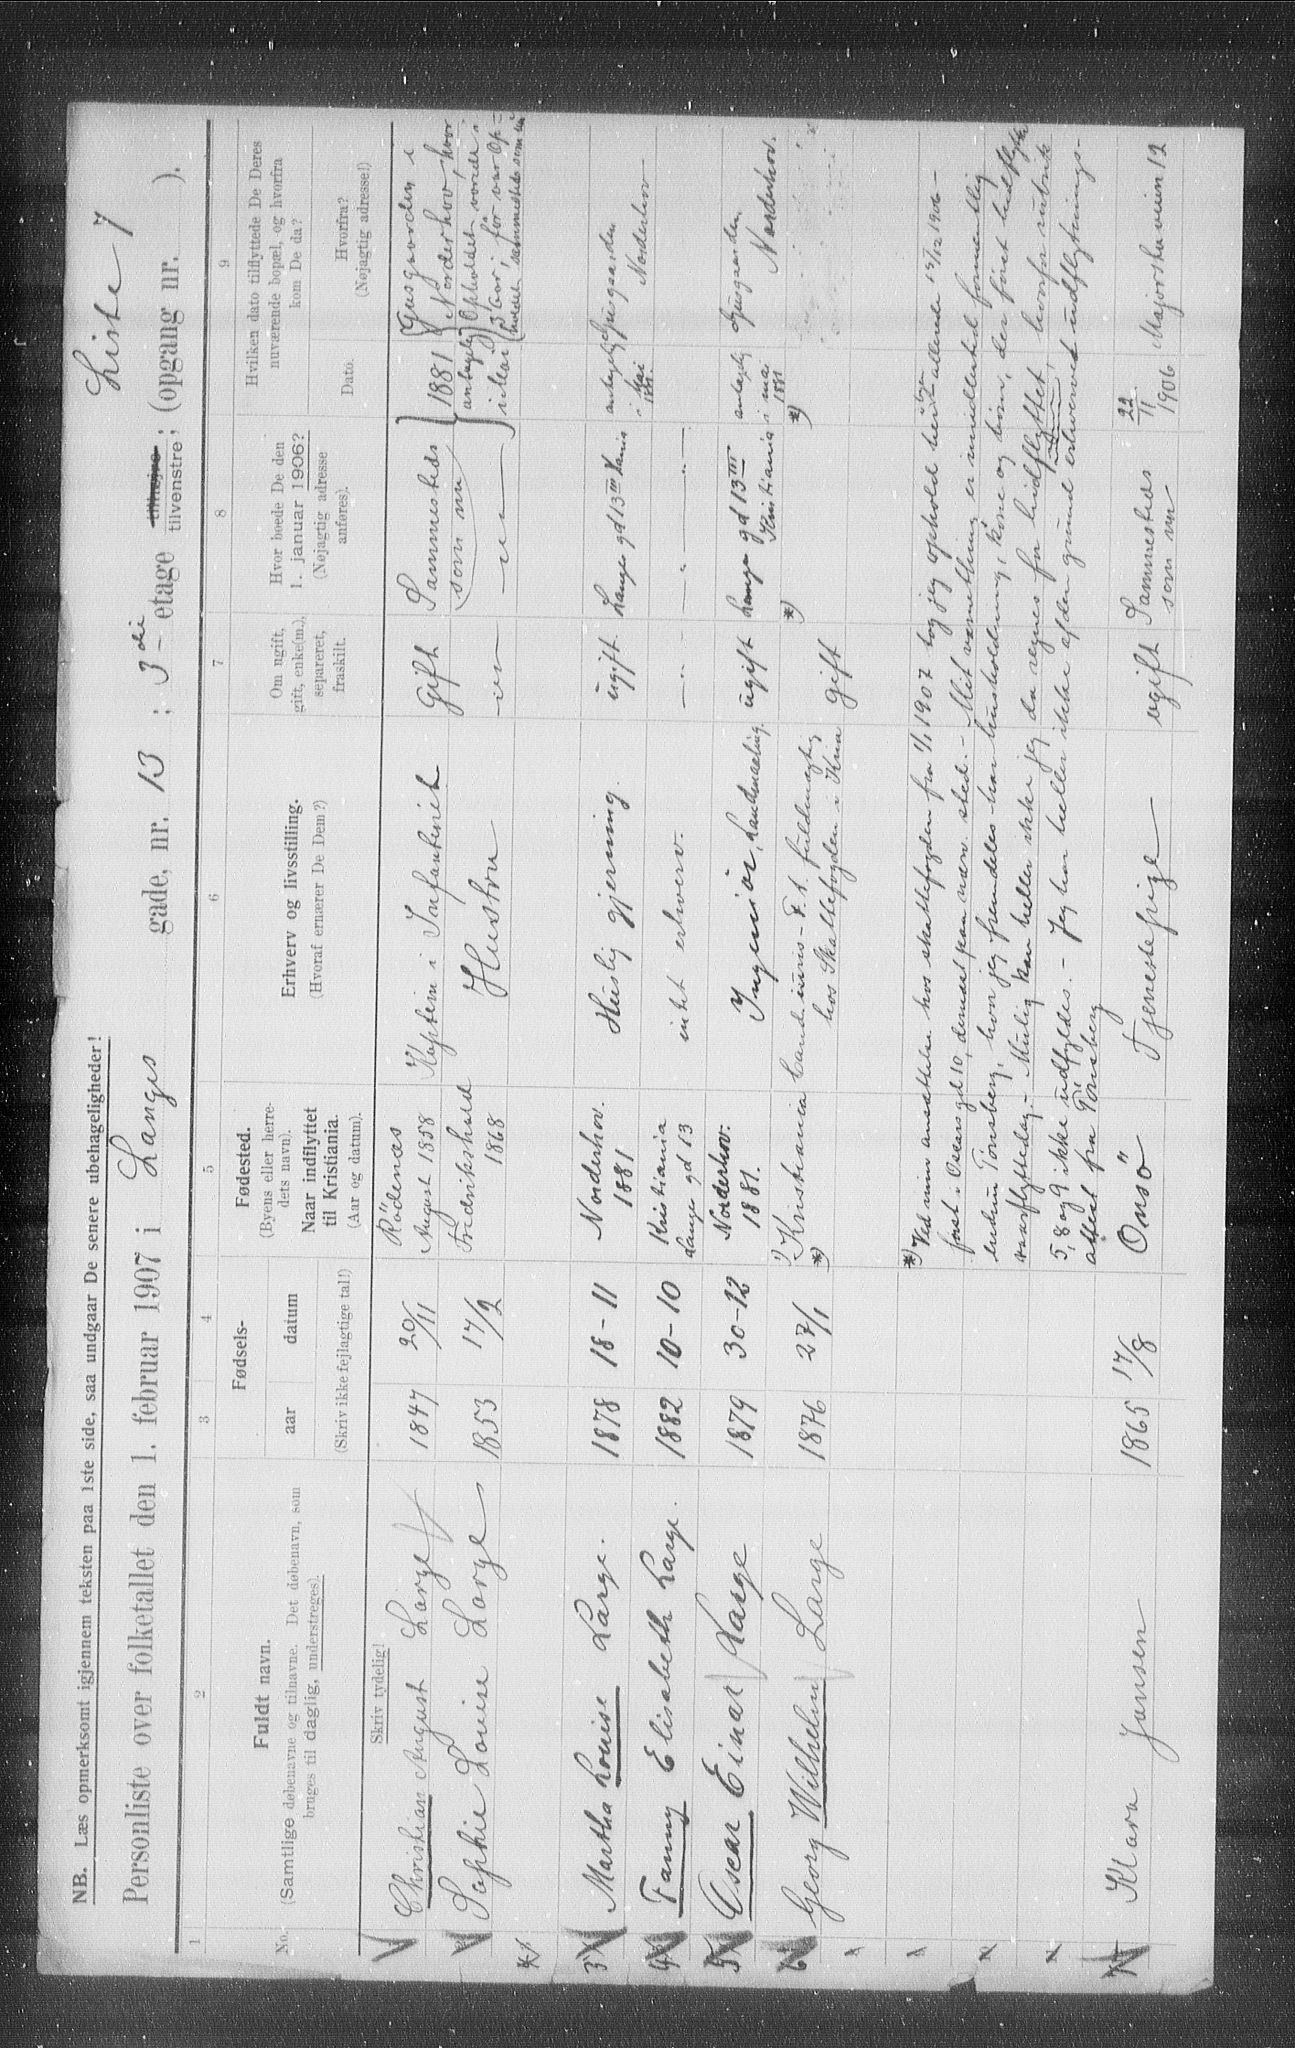 NB. Læs opmerksomt igjennem teksten paa 1ste side, saa undgaar De senere ubehageligheder!
Liste 7
Personliste over folketallet den 1. februar 1907 i Langes gade, nr. 13 ; 3die etage tilhøjre tilvenstre; (opgang nr. ).
1 2 3 4 5 6 7 8 9
No.
Fuldt navn.
(Samtlige døbenavne og tilnavne. Det døbenavn, som
bruges til daglig, understreges).
Fødsels-
aar datum
(Skriv ikke fejlagtige tal!)
Fødested.
(Byens eller herre-
dets navn).
Naar indflyttet
til Kristiania.
(Aar og datum).
Erhverv og livsstilling.
(Hvoraf ernærer De Dem?)
Om ugift,
gift, enke(m.),
separeret,
fraskilt.
Hvor boede De den
1. januar 1906?
(Nøjagtig adresse
anføres).
Hvilken dato tilflyttede De Deres
nuværende bopæl, og hvorfra
kom De da?
Dato.
Hvorfra?
(Nøjagtig adresse!)
Skriv tydelig!
Christian August Lorge 1847 20/11 Rödenæs August 1858 Kaptein i Infanteriet Gift Sammesteds som nu 1881 antagelig i Mai
Norderhov, hvor Opholdet varede i 3 Aar; før var Opholdet sammesteds som nu
Sophie Louise Lorge 1853 17/2 Fredrikshald 1868 Hustru
3 Martha Louise Large. 1878 18-11 Norderhov. 1881 Huslig gjerning. ugift Langes gd 13 III Kania antagelig i Mai 1881. Norderhov
4 Fanny Elisabeth Large. 1882 10-10 Kristiania Langes gd 13 intet erhverv. — " — — " —
5 Oscar Einar Large 1879 30-12 Norderhov. 1881. Ingeniör, Landmaaling. ugift Langes gd 13 III Kristiania antagelig i mai 1881 Norderhov.
6 Georg Wilhelm Large 1876 27/1 Kristiania *) Cand. juris - F. t. fuldmægtig hos Skattefogden i Kria gift *) *)
*) Ved min ansættelse hos skattefogden fra 1/1 1907 tog jeg ophold her allerede 15/12 1906 -
först i Oscars gd 10, dernæst paa nærv. sted. - Mit værnething er imidlertid formentlig
endnu Tönsberg, hvor jeg fremdeles har husholdning, kone og börn, der först hidflytte
vaarflyttedag. - Mulig kan heller ikke jeg da regnes for hidflyttet, hvorfor rubrik
5, 8 og 9 ikke udfyldes. - Jeg har heller ikke af den grund erhvervet udflytnings-
attest fra Tönsberg
7 Klara Jansen 1865 17/8 Onsö Tjenestepige ugift Sammesteds som nu 22/11 1906 Majorstuveien 12